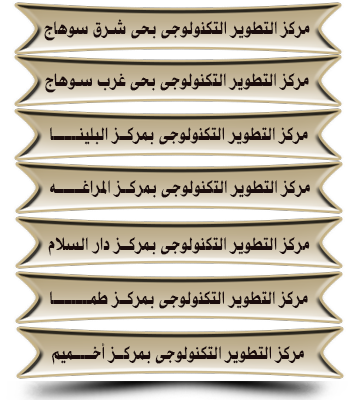 مركز التطوير التكنولوجى بحى شرق سوهاج
مركز التطوير التكنولوجى بحى غرب سوهاج
مركز التطوير التكنولوجى بمركـز البلينـــــا
مركز التطوير التكنولوجى بمركـز المراغـــــه
مركز التطوير التكنولوجى بمركـز دار السلام
مركز التطوير التكنولوجى بمركـز طمـــــــا
مركز التطوير التكنولوجى بمركـز أخـــميم